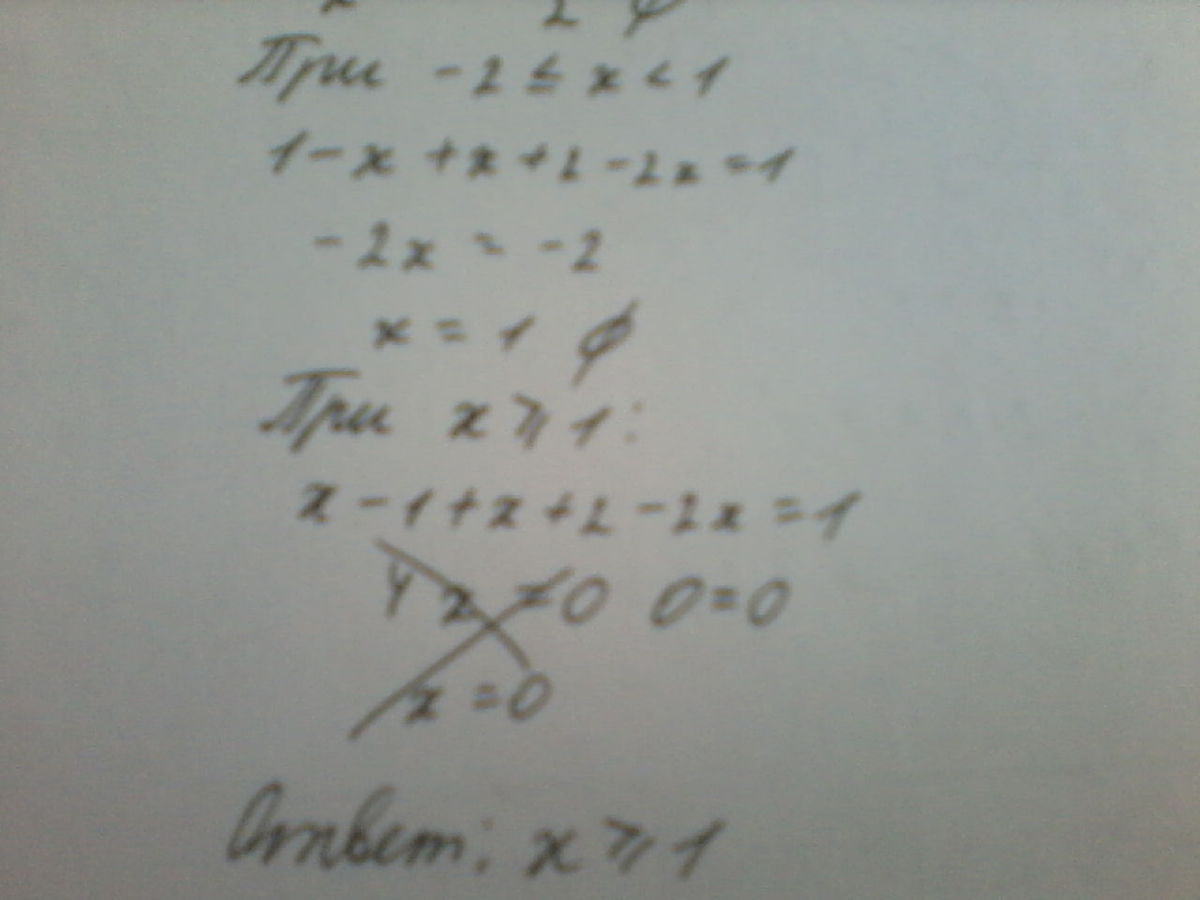 x 2 ∅
При -2 ≤ x < 1
1 - x + x + 2 - 2x = 1
-2x = -2
x = 1 ∅
При x ⩾ 1:
x - 1 + x + 2 - 2x = 1
4x = 0 0 = 0
x = 0
Ответ: x ⩾ 1